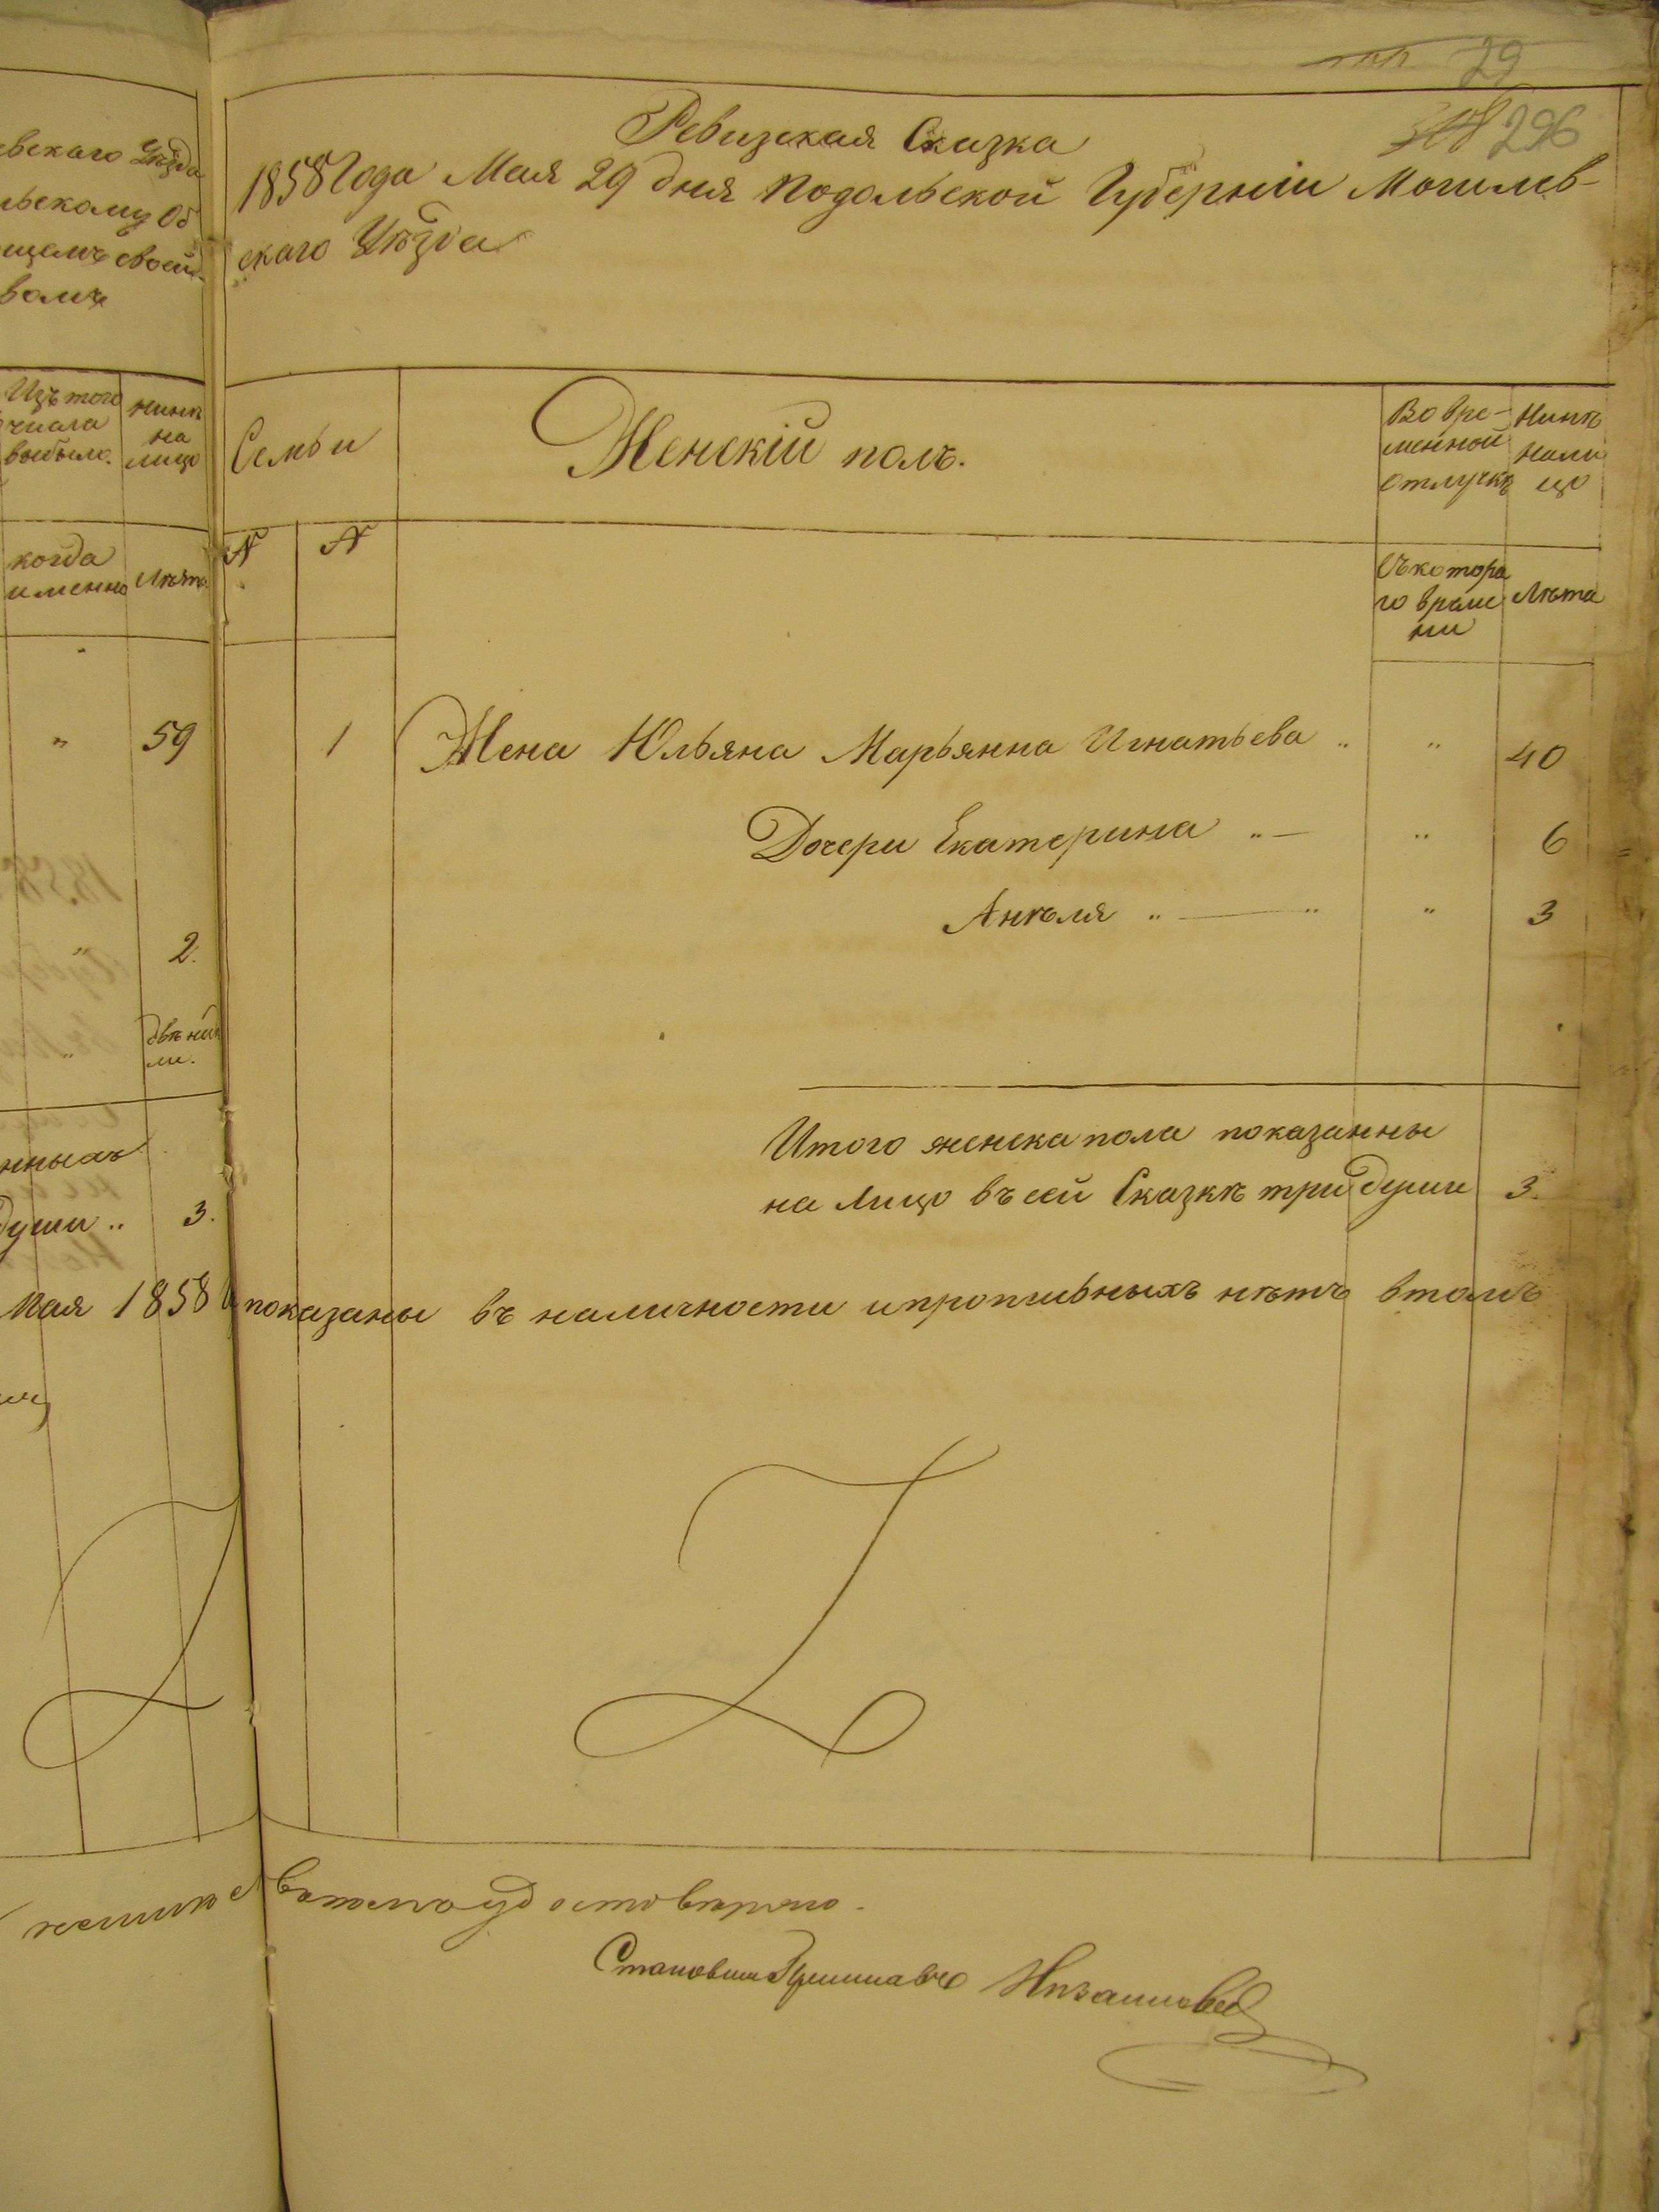 29
296
Ревизская Сказка
1858 Года Мая 29 дня Подольской Губерніи Могилев-
скаго Уѣзда
евскаго Уѣзда
льскому Об
щемъ своей
вомъ
Изъ того
числа
выбыло.
Нынѣ
на
лицо
Семьи
Женскій полъ.
Во вре-
менной
отлучкѣ
Нынѣ
нали
цо
когда
именно
Лѣта
N
N
Съ котора
го време
ни
Лѣта
" 59
1 Жена Юльяна Марьянна Игнатьева " " 40
Дочери Екатерина " — " 6
Анѣля " — " " 3
2.
двѣ нѣд
ли.
Итого женска пола показанны
на лицо въ сей Сказкѣ три души 3.
нныхъ
души " 3.
Мая 1858 показаны въ наличности и противныхъ нѣтъ втомъ
удостовѣряю.
Становый Приставъ